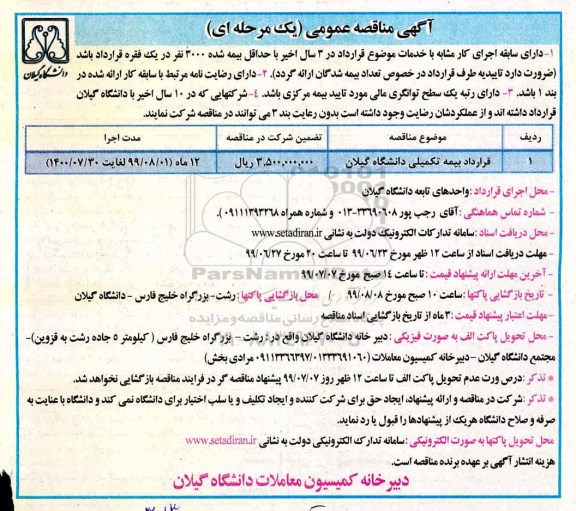 آگهی مناقصه عمومی (یک مرحله ای)
دانشگاه گیلان
۱- دارای سابقه اجرای کار مشابه با خدمات موضوع قرارداد در ۳ سال اخیر با حداقل بیمه شده ۳۰۰۰ نفر در یک فقره قرارداد باشد
(ضرورت دارد تاییدیه طرف قرارداد در خصوص تعداد بیمه شدگان ارائه گردد). ۲- دارای رضایت نامه مرتبط با سابقه کار ارائه شده در
بند ۱ باشد. ۳- دارای رتبه یک سطح توانگری مالی مورد تایید بیمه مرکزی باشد. ۴- شرکتهایی که در ۱۰ سال اخیر با دانشگاه گیلان
قرارداد داشته اند و از عملکردشان رضایت وجود داشته است بدون رعایت بند ۳ می توانند در مناقصه شرکت نمایند.
ردیف موضوع مناقصه تضمین شرکت در مناقصه مدت اجرا
۱ قرارداد بیمه تکمیلی دانشگاه گیلان ۳.۵۰۰.۰۰۰.۰۰۰ ریال ۱۲ ماه (۹۹/۰۸/۰۱ لغایت ۱۴۰۰/۰۷/۳۰)
- محل اجرای قرارداد: واحدهای تابعه دانشگاه گیلان
- شماره تماس هماهنگی: آقای رجب پور ۳۳۶۹۰۶۰۸-۰۱۳ و شماره همراه ۰۹۱۱۱۳۹۳۲۶۸).
- محل دریافت اسناد: سامانه تدارکات الکترونیک دولت به نشانی www.setadiran.ir
- مهلت دریافت اسناد از ساعت ۱۲ ظهر مورخ ۹۹/۰۶/۲۳ تا ساعت ۲۰ مورخ ۹۹/۰۶/۲۷
- آخرین مهلت ارائه پیشنهاد قیمت: تا ساعت ۱۴ صبح مورخ ۹۹/۰۷/۰۷
- تاریخ بازگشایی پاکتها: ساعت ۱۰ صبح مورخ ۹۹/۰۸/۰۸ / محل بازگشایی پاکتها: رشت- بزرگراه خلیج فارس - دانشگاه گیلان
- مهلت اعتبار پیشنهاد قیمت: ۳ ماه از تاریخ بازگشایی اسناد مناقصه
- محل تحویل پاکت الف به صورت فیزیکی: دبیر خانه دانشگاه گیلان واقع در: رشت - بزرگراه خلیج فارس ( کیلومتر ۵ جاده رشت به قزوین)-
مجتمع دانشگاه گیلان - دبیرخانه کمیسیون معاملات (۰۱۳۳۳۶۹۱۰۶۰/ ۰۹۱۱۳۳۶۶۳۹۷ مرادی بخش)
* تذکر: درصورت عدم تحویل پاکت الف تا ساعت ۱۲ ظهر روز ۹۹/۰۷/۰۷ پیشنهاد مناقصه گر در فرایند مناقصه بازگشایی نخواهد شد.
* تذکر: شرکت در مناقصه و ارائه پیشنهاد، ایجاد حق برای شرکت کننده و ایجاد تکلیف و یا سلب اختیار برای دانشگاه نمی کند و دانشگاه با عنایت به
صرفه و صلاح دانشگاه هریک از پیشنهادها را قبول یا رد نماید.
محل تحویل پاکتها به صورت الکترونیکی: سامانه تدارک الکترونیکی دولت به نشانی www.setadiran.ir
هزینه انتشار آگهی بر عهده برنده مناقصه است.
دبیرخانه کمیسیون معاملات دانشگاه گیلان